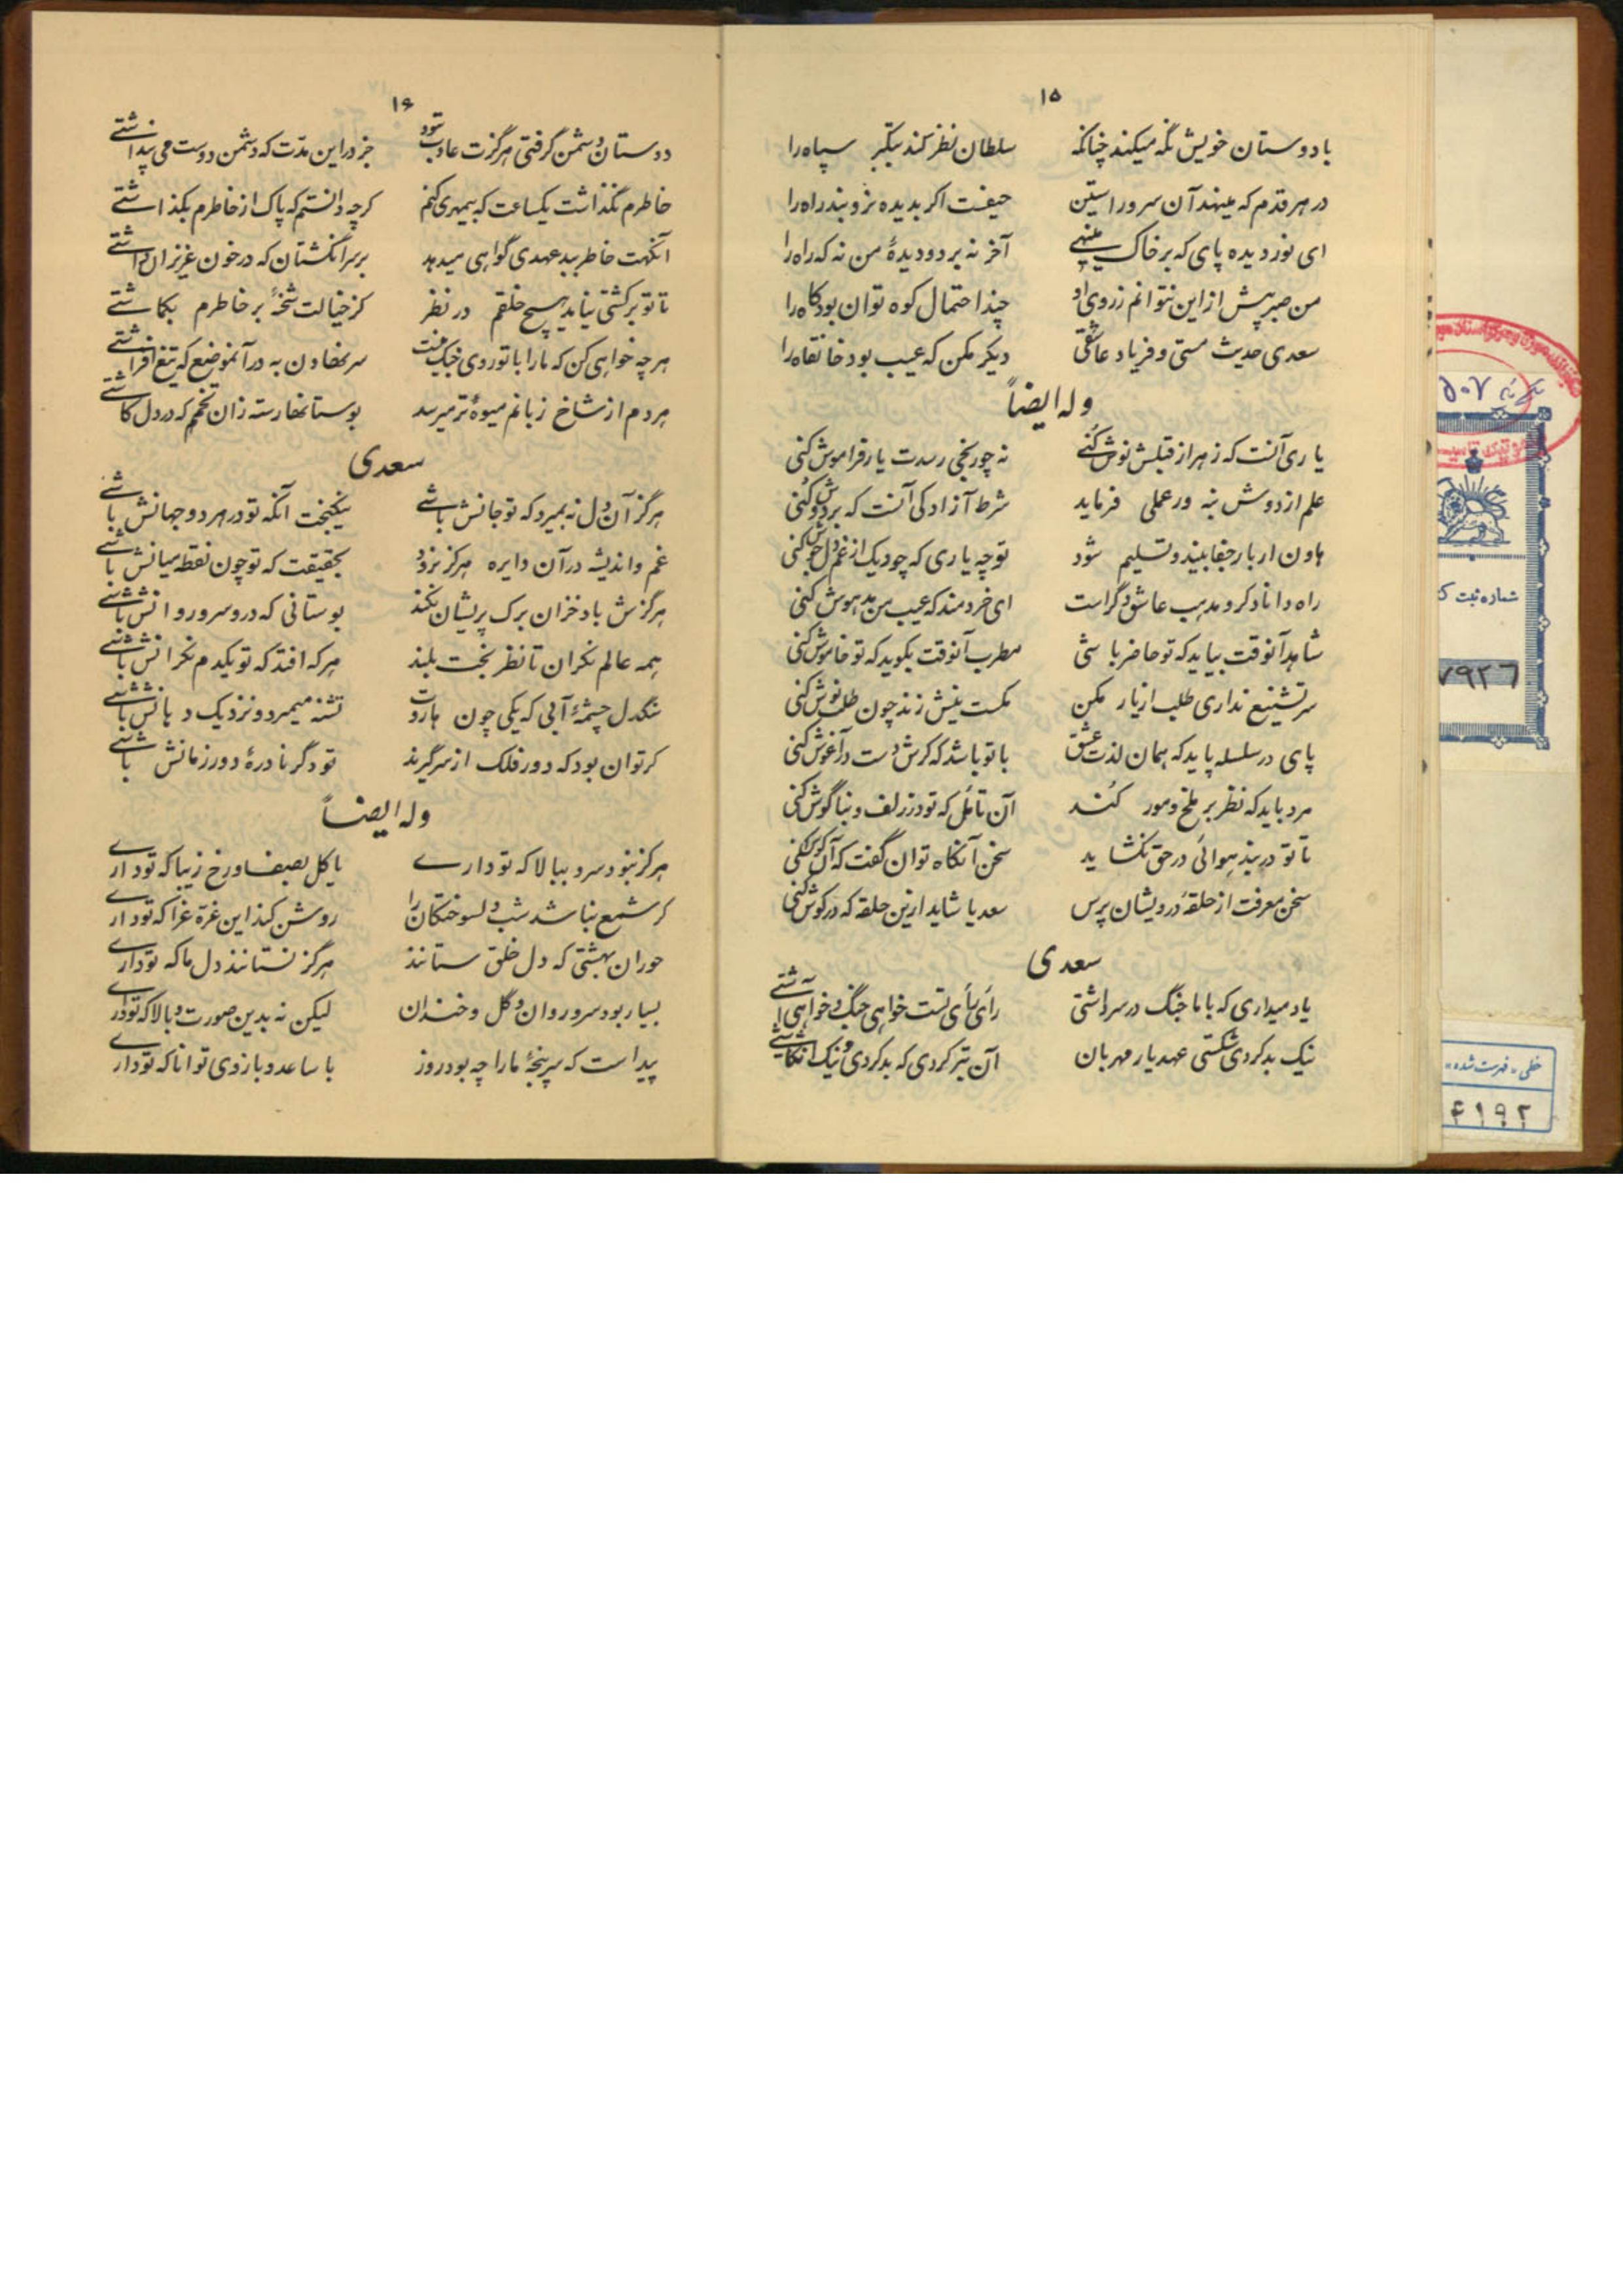 ۱۵
با دوستان خویش نگه میکند چنانکه سلطان نظر کند بتکبر سپاه را
در هر قدم که مینهد آن سرو راستین حیفست اگر بدیده نروبند راه را
ای نور دیده پای که بر خاک مینهی آخر نه بر دو دیدهٔ من نه که راه را
من صبر پیش از این نتوانم ز روی او چند احتمال کوه توان بود کاه را
سعدی حدیث مستی و فریاد عاشقی دیگر مکن که عیب بود خانقاه را
وله ایضاً
یاری آنست که زهر از قبلش نوش کنی نه چو رنجی رسدت یار فراموش کنی
علم از دوش بنه ور عملی فرماید شرط آزادگی آنست که بر دوش کنی
هاون ار بار جفا بیند و تسلیم شود تو چه یاری که چو دیک از غم دل جوش کنی
راه دانا دگر و مذهب عاشق دگر است ای خردمند که عیب من مدهوش کنی
شاهد آنوقت بیاید که تو حاضر باشی مطرب آنوقت بگوید که تو خاموش کنی
سر تشنیع نداری طلب از یار مکن مگست نیش زند چون طلب نوش کنی
پای در سلسله باید که همان لذت عشق با تو باشد که گرش دست در آغوش کنی
مرد باید که نظر بر ملخ و مور کند آن تأمل که تو در زلف و بناگوش کنی
تا تو در بند هوائی در حق نگشاید سخن آنگاه توان گفت که آن گوش کنی
سخن معرفت از حلقهٔ درویشان پرس سعدیا شاید ازین حلقه که در گوش کنی
سعدی
یاد میداری که با ما جنگ در سر داشتی رأی رأی تست خواهی جنگ و خواهی آشتی
نیک بد کردی شکستی عهد یار مهربان آن بتر کردی که بد کردی و نیک انگاشتی
۱۶
دوستان دشمن گرفتی هرگزت عادت نبود جز در این مدت که دشمن دوست می پنداشتی
خاطرم نگذاشت یکساعت که بیمهری کنم گرچه دانستم که پاک از خاطرم بگذاشتی
آنگهت خاطر ببد عهدی گواهی میدهد بر سر انگشتان که در خون عزیزان داشتی
تا تو برگشتی نیامد هیچ خلقم در نظر کز خیالت شحنهٔ بر خاطرم بگماشتی
هر چه خواهی کن که ما را با تو روی جنگ نیست سر نهادن به در آنموضع که تیغ افراشتی
هر دم از شاخ زبانم میوهٔ تر میرسد بوستانها رسته زان تخم که در دل کاشتی
سعدی
هرگز آن دل نه بمیرد که تو جانش باشی نیکبخت آنکه تو در هر دو جهانش باشی
غم و اندیشه در آن دایره هرگز نرود بحقیقت که تو چون نقطه میانش باشی
هرگزش باد خزان برک پریشان نکند بوستانی که در و سرو روانش باشی
همه عالم نگران تا نظر بخت بلند بر که افتد که تو یکدم نگرانش باشی
سنگدل چشمهٔ آبی که یکی چون هاروت تشنه میمیرد و نزدیک دهانش باشی
گر توان بود که دور فلک از سر گیرند تو دگر نادرهٔ دور زمانش باشی
وله ایضاً
هرگز نبود سرو ببالا که تو داری یا گل بصفا و رخ زیبا که تو داری
گر شمع نباشد شب دلسوختگان را روشن کند این غرهٔ غرا که تو داری
حوران بهشتی که دل خلق ستانند هرگز نستانند دل ما که تو داری
بسیار بود سرو روان و گل و خندان لیکن نه بدین صورت و بالا که تو داری
پیداست که سرپنجهٔ ما را چه بود روز با ساعد و بازوی توانا که تو داری
۵۰۷
شماره ثبت
۷۹۲۶
خطی - فهرست شده
۴۱۹۲